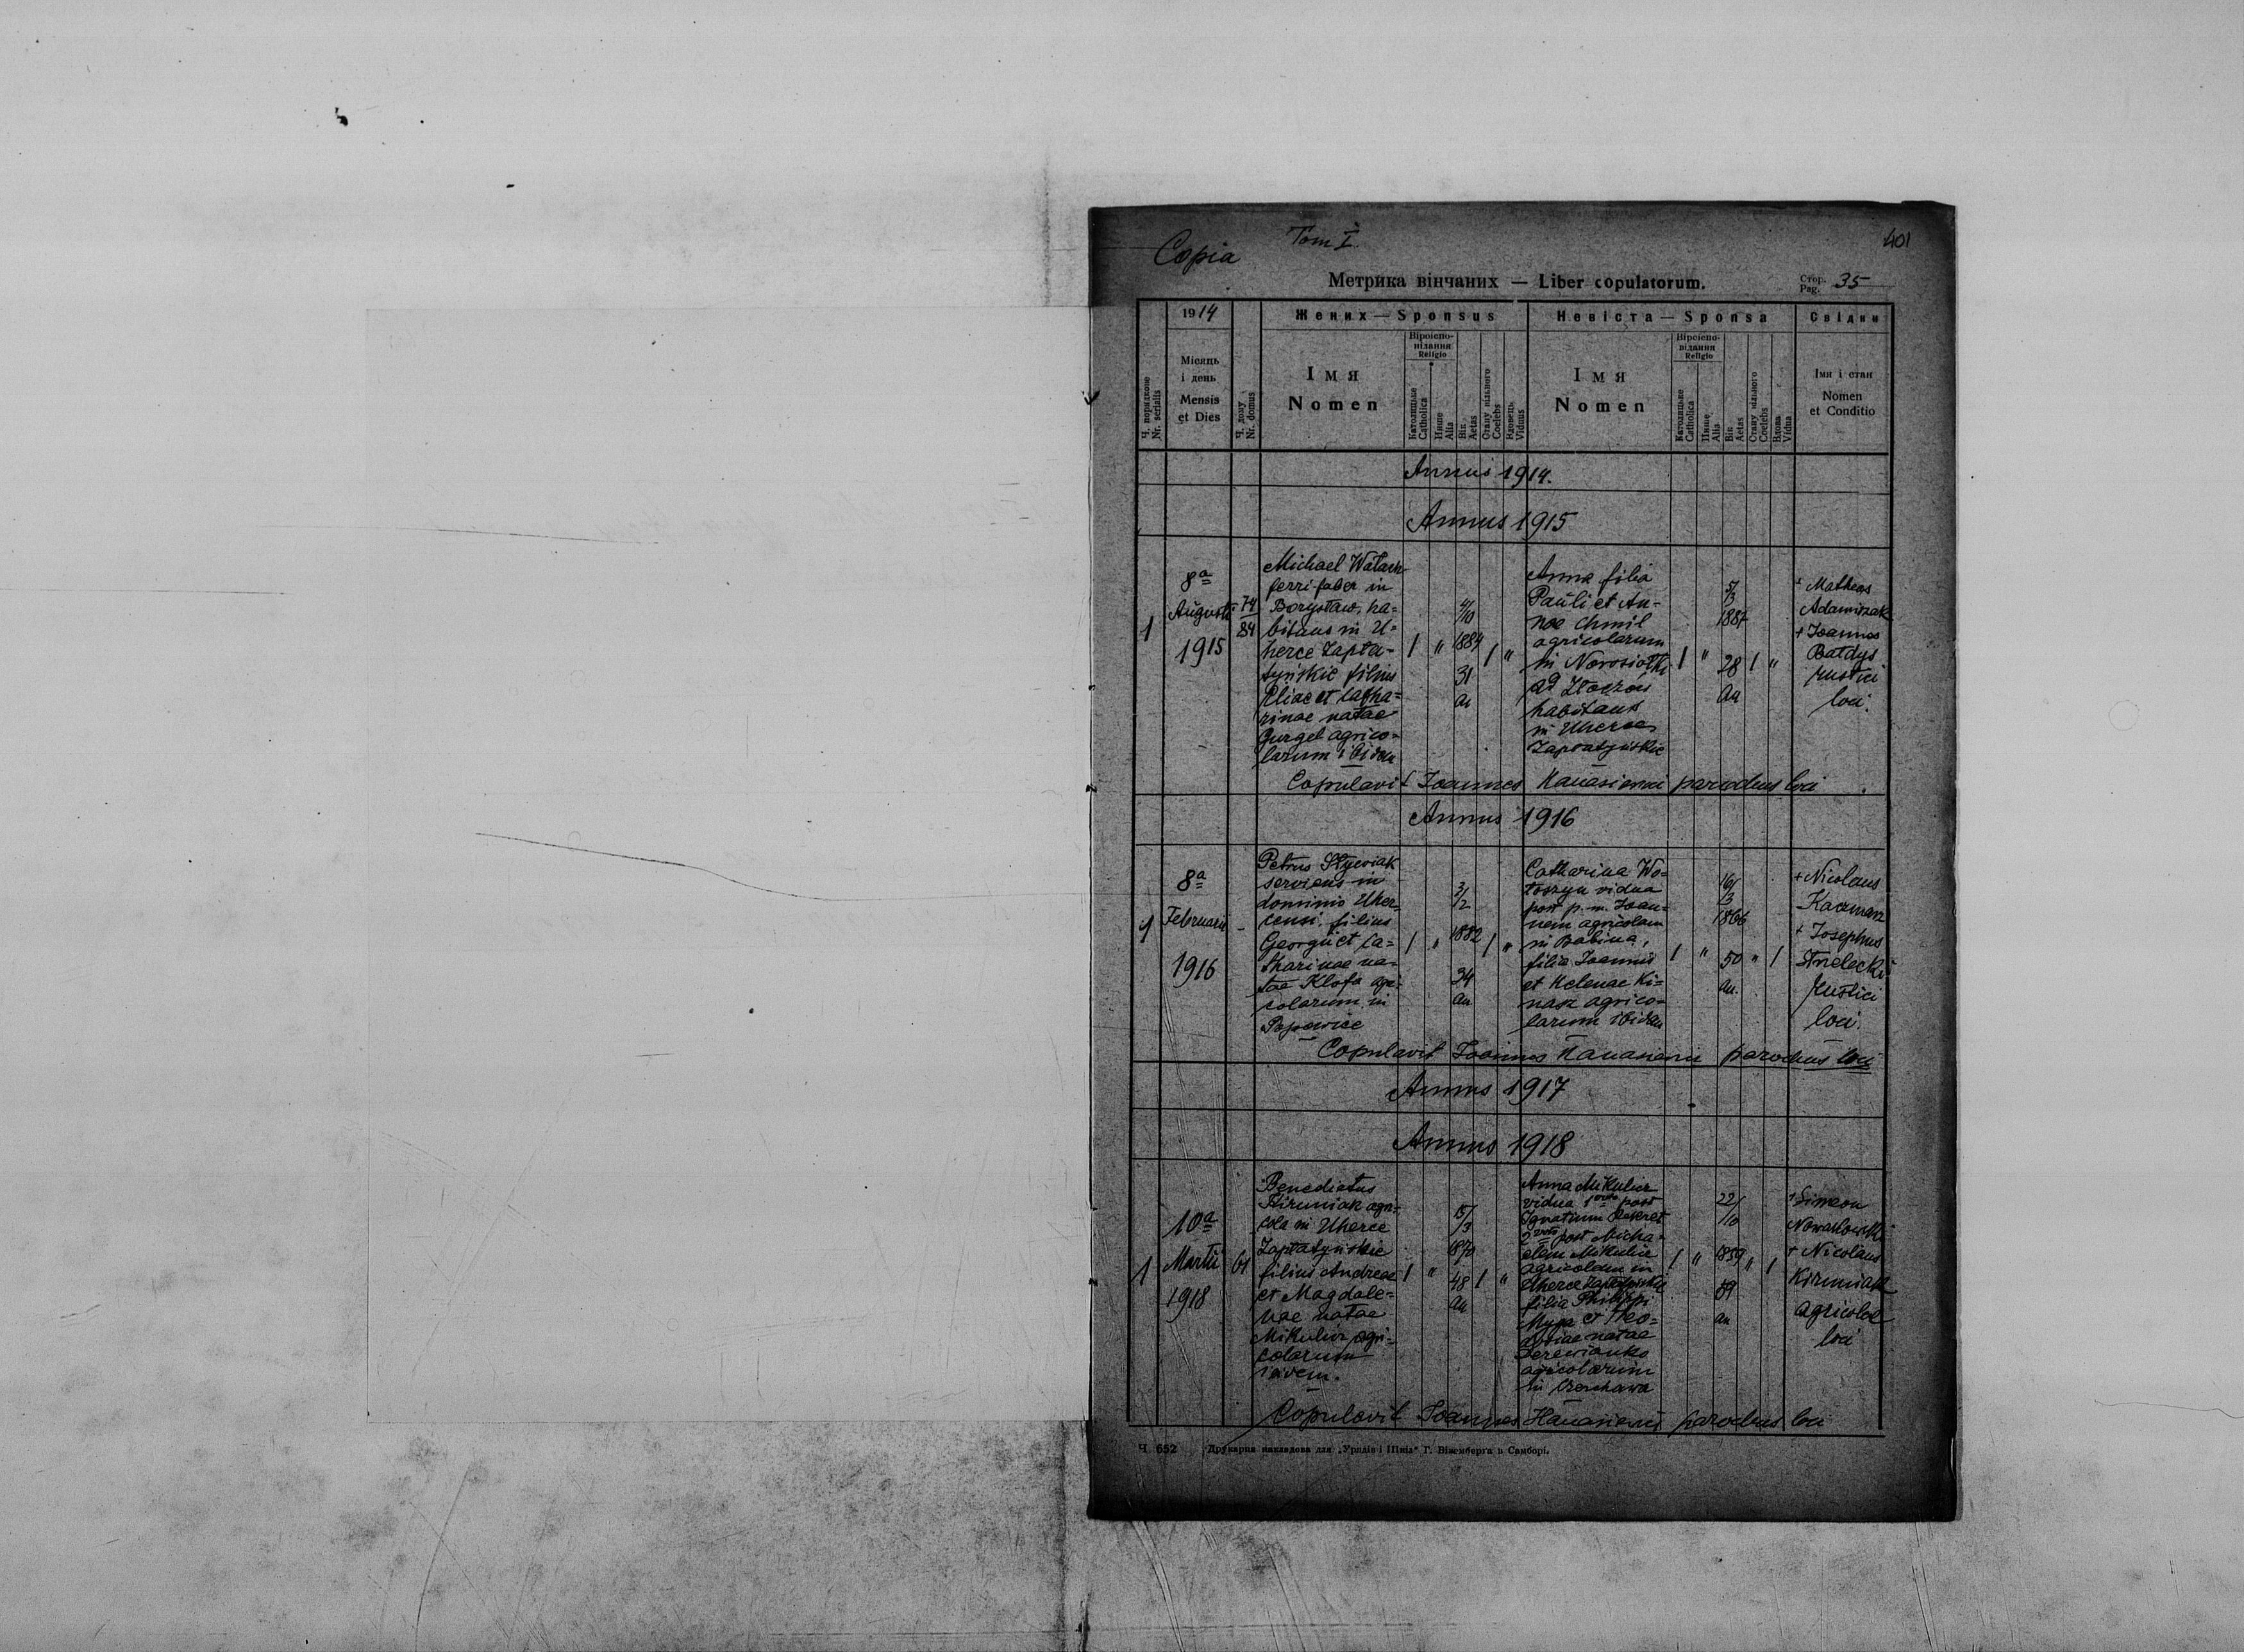 Copia
Tom I
401
Метрика вінчаних — Liber copulatorum.
Стор.
Pag. 35
Ч. порядкове
Nr. serialis
1914
Місяць
і день
Mensis
et Dies
Ч. дому
Nr. domus
Жених — Sponsus
Імя
Nomen
Віроіспо-
відання
Religio
Католицьке
Catholica
Инше
Alia
Вік
Aetas
Стану вільного
Coelebs
Вдовець
Viduus
Невіста — Sponsa
Імя
Nomen
Віроіспо-
відання
Religio
Католицьке
Catholica
Инше
Alia
Вік
Aetas
Стану вільного
Coelebs
Вдова
Vidua
Свідки
Імя і стан
Nomen
et Conditio
Annus 1914.
Annus 1915
1
8ª
Augusti
1915
74
84
Michael Wałach
ferri faber in
Borysław, ha-
bitans in U-
herce Zapła-
tyńskie filius
Eliae et Catha-
rinae natae
Gurgel agrico-
larum ibidem
4/10
1884
31
an
Anna filia
Pauli et An-
nae Chmil
agricolarum
in Nowosiółki
ad
habitans
in Uherce
Zapłatyńskie
5/3
1887
28
an
+ Matheas
Adamiszak
+ Joannes
Bałdys
rustici
loci.
Copulavit Joannes parochus loci
Annus 1916
1
8ª
Februarii
1916
-
Petrus
serviens in
dominio Uher-
censi, filius
Georgii et Ca-
tharinae na-
tae Klofa agri-
colarum in
Popowice
3/2
1882
34
an
Catharina Wo-
łoszyn vidua
post p. m. Joan-
nem agricolam
in Babina,
filia Joannis
et Helenae Ki-
nasz agrico-
larum ibidem
16/3
1866
50
an.
+ Nicolaus
Kaczmarz
+ Josephus
Strzelecki
rustici
loci.
Copulavit Joannes parochus loci
Annus 1917
Annus 1918
1
10ª
Martii
1918
61
Benedictus
Kirmiak agri-
cola in Uherce
Zapłatyńskie
filius Andreae
et Magdale-
nae natae
Mikulicz agri-
colarum
ibidem.
15/3
1870
48
an
Anna Mikulicz
vidua 1 voto post
Ignatium
2 voto post Micha-
elem Mikulicz
agricolam in
Uherce Zapłatyńskie
filia Philippi
et Theo-
dosiae natae
agricolarum
in
22/10
1859
59
an
+ Simeon
+ Nicolaus
Kirmiak
agricolae
loci
Copulavit Joannes parochus loci
Ч. 652 Друкарня накладова для „Урядів і Шкіл" Г. Вікенберга в Самборі.